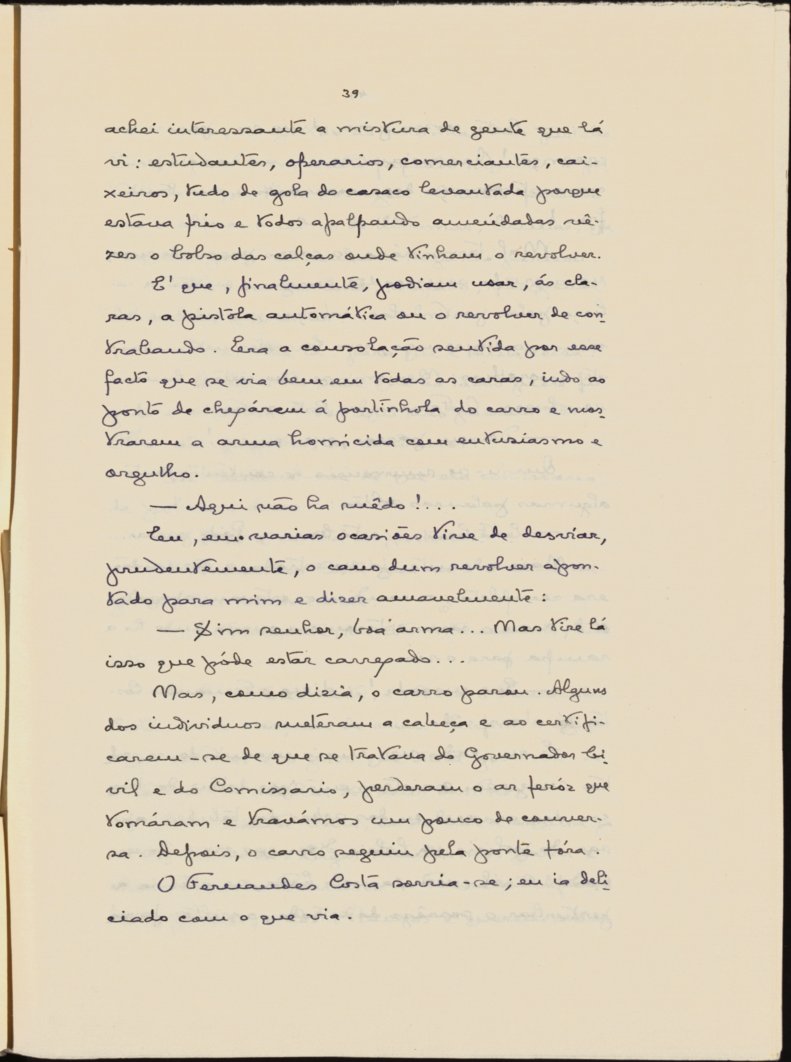 39
achei interessante a mistura de gente que lá
vi: estudantes, operarios, comerciantes, cai-
xeiros, tudo de gola do casaco levantada porque
estava frio e todos apalpando ameúdadas vê-
zes o bolso das calças onde tinham o revolver.
E' que, finalmente, podiam usar, ás cla-
ras, a pistola automática ou o revolver de con-
trabando. Era a consolação sentida por esse
facto que se via bem em todas as caras, indo ao
ponto de chegárem á portinhola do carro e mos-
trarem a arma homicida com entusiasmo e
orgulho.
— Aqui não ha mêdo!...
Eu, em varias ocasiões tive de desviar,
prudentemente, o cano dum revolver apon-
tado para mim e dizer amavelmente:
— Sim senhor, boa arma... Mas tire lá
isso que póde estar carregado...
Mas, como dizia, o carro parou. Alguns
dos individuos metéram a cabeça e ao certifi-
carem-se de que se tratava do Governador Ci-
vil e do Comissario, perderam o ar feróz que
tomáram e travámos um pouco de conver-
sa. Depois, o carro seguiu pela ponte fóra.
O Fernandes Costa sorria-se; eu ia deli-
ciado com o que via.